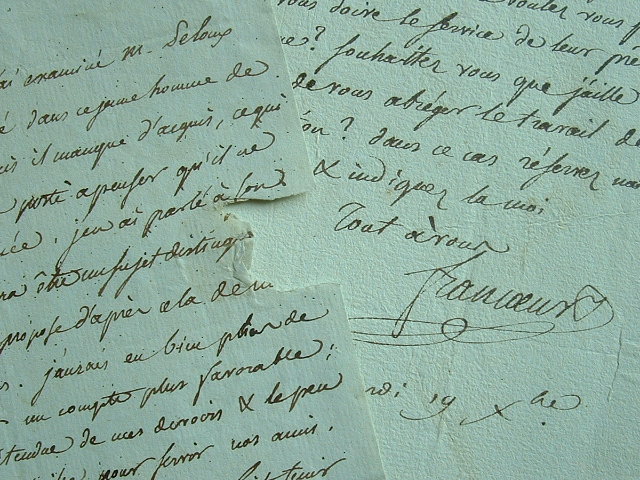 ai examiné M. Leloup
é dans ce jeune homme de
is il manque d'acquis, ce qui
porté a penser qu'il ne
j'en ai parlé à
ra être un sujet distingué
propose d'après cela de
s. j'aurais eu bien plaisir de
un compte plus favorable;
étendue de mes devoirs & le peu
pour servir nos amis.
voulez vous
vous dire le service de leur
e? souhaittez vous que j'aille
de vous abréger le travail de
on? dans ce cas réservez
& indiquez la moi
Tout à vous
Francoeur
di 19 Xbre